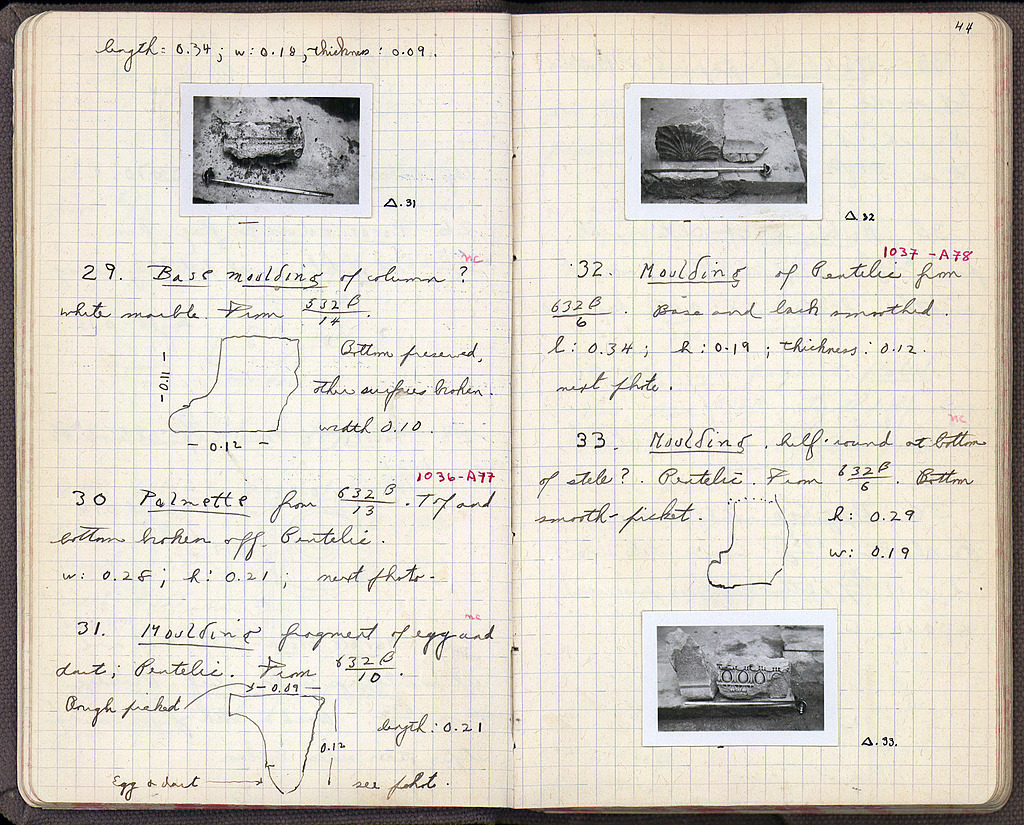 length: 0.34; w: 0.18; thickness: 0.09.
Δ.31
nc
29. Base moulding of column?
white marble. From 532 Β/14.
Bottom preserved,
-0.11-
other surfaces broken.
width 0.10.
- 0.12 -
1036-A77
30 Palmette from 632 Β/13. Top and
bottom broken off. Pentelic.
w: 0.28; h: 0.21; next photo-
nc
31. Moulding fragment of egg and
dart; Pentelic. From 632 Β/10.
-0.09-
Rough picked
length: 0.21
0.12
Egg & dart
see photo.
44
Δ.32
1037-A78
32. Moulding of Pentelic from
632 Β/6. Base and back smoothed.
l: 0.34; h: 0.19; thickness: 0.12.
next photo.
nc
33. Moulding, half-round at bottom
of stele? Pentelic. From 632 Β/6. Bottom
smooth-picket.
h: 0.29
w: 0.19
Δ.33.